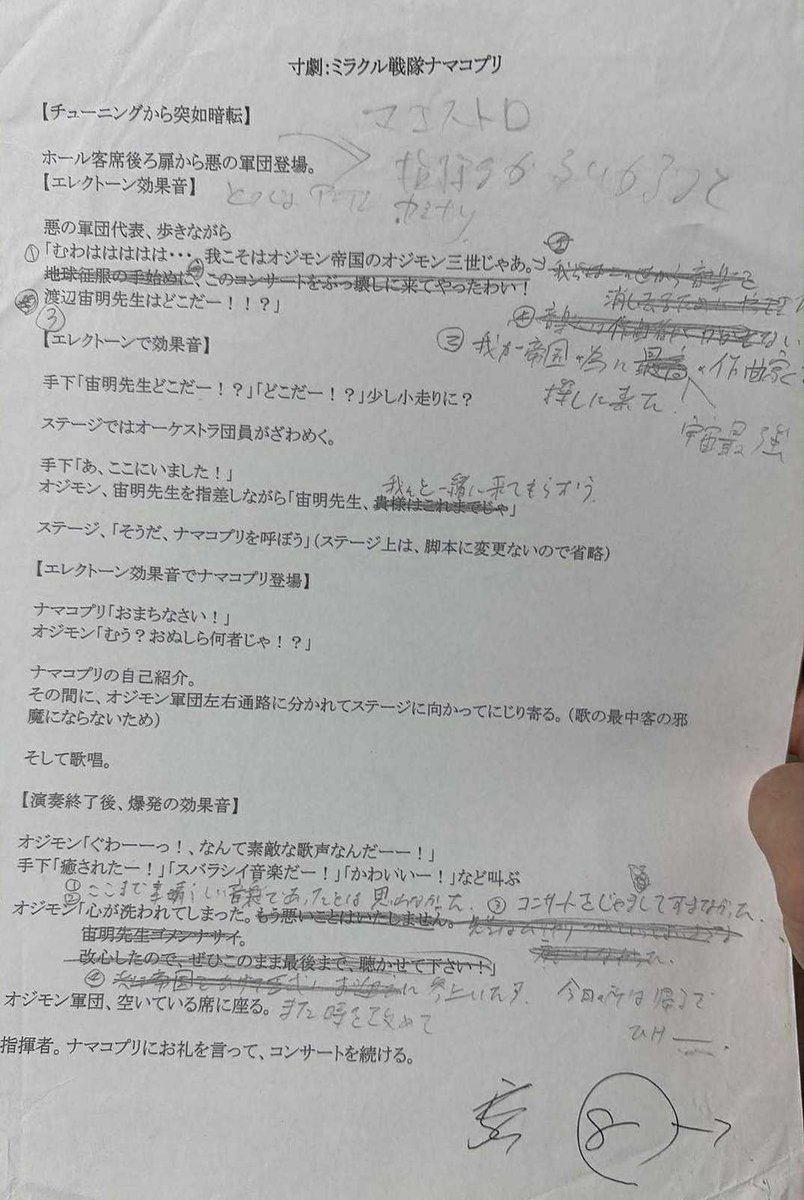 寸劇:ミラクル戦隊ナマコプリ
【チューニングから突如暗転】
マエストロ
ホール客席後ろ扉から悪の軍団登場。
【エレクトーン効果音】
カミナリ
悪の軍団代表、歩きながら
①「むわはははははは・・・、我こそはオジモン帝国のオジモン三世じゃあ。」
地球征服の手始めに、このコンサートをぶっ壊しに来てやったわい!
渡辺宙明先生はどこだー!!?」
③
【エレクトーンで効果音】
② 我が帝国の為に最高の作曲家を
探しに来た!
宇宙最強
手下「宙明先生どこだー!?」「どこだー!?」少し小走りに?
ステージではオーケストラ団員がざわめく。
手下「あ、ここにいました!」
我々と一緒に来てもらおう
オジモン、宙明先生を指差しながら「宙明先生、貴様はこれまでじゃ」
ステージ、「そうだ、ナマコプリを呼ぼう」(ステージ上は、脚本に変更ないので省略)
【エレクトーン効果音でナマコプリ登場】
ナマコプリ「おまちなさい!」
オジモン「むう?おぬしら何者じゃ!?」
ナマコプリの自己紹介。
その間に、オジモン軍団左右通路に分かれてステージに向かってにじり寄る。(歌の最中客の邪
魔にならないため)
そして歌唱。
【演奏終了後、爆発の効果音】
オジモン「ぐわーーっ!、なんて素敵な歌声なんだーー!」
手下「癒されたー!」「スバラシイ音楽だー!」「かわいいー!」など叫ぶ
① ここまで素晴しい音楽であったとは思わなかった。 ③ コンサートをじゃましてすまなかった。
② オジモン「心が洗われてしまった。もう悪いことはいたしません。
宙明先生ゴメンナサイ。
改心したので、ぜひこのまま最後まで、聴かせて下さい!」
④ 参上いたす。 今日の所は帰るで
オジモン軍団、空いている席に座る。また時を改めて
指揮者。ナマコプリにお礼を言って、コンサートを続ける。
8